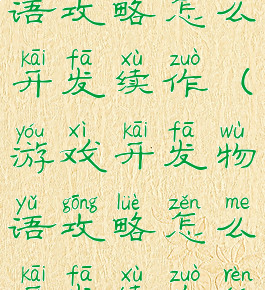 语攻略怎么
kāi fā xù zuò
开发续作（
yóu xì kāi fā wù
游戏开发物
yǔ gōng lüè zěn me
语攻略怎么
kāi fā xù zuò rèn